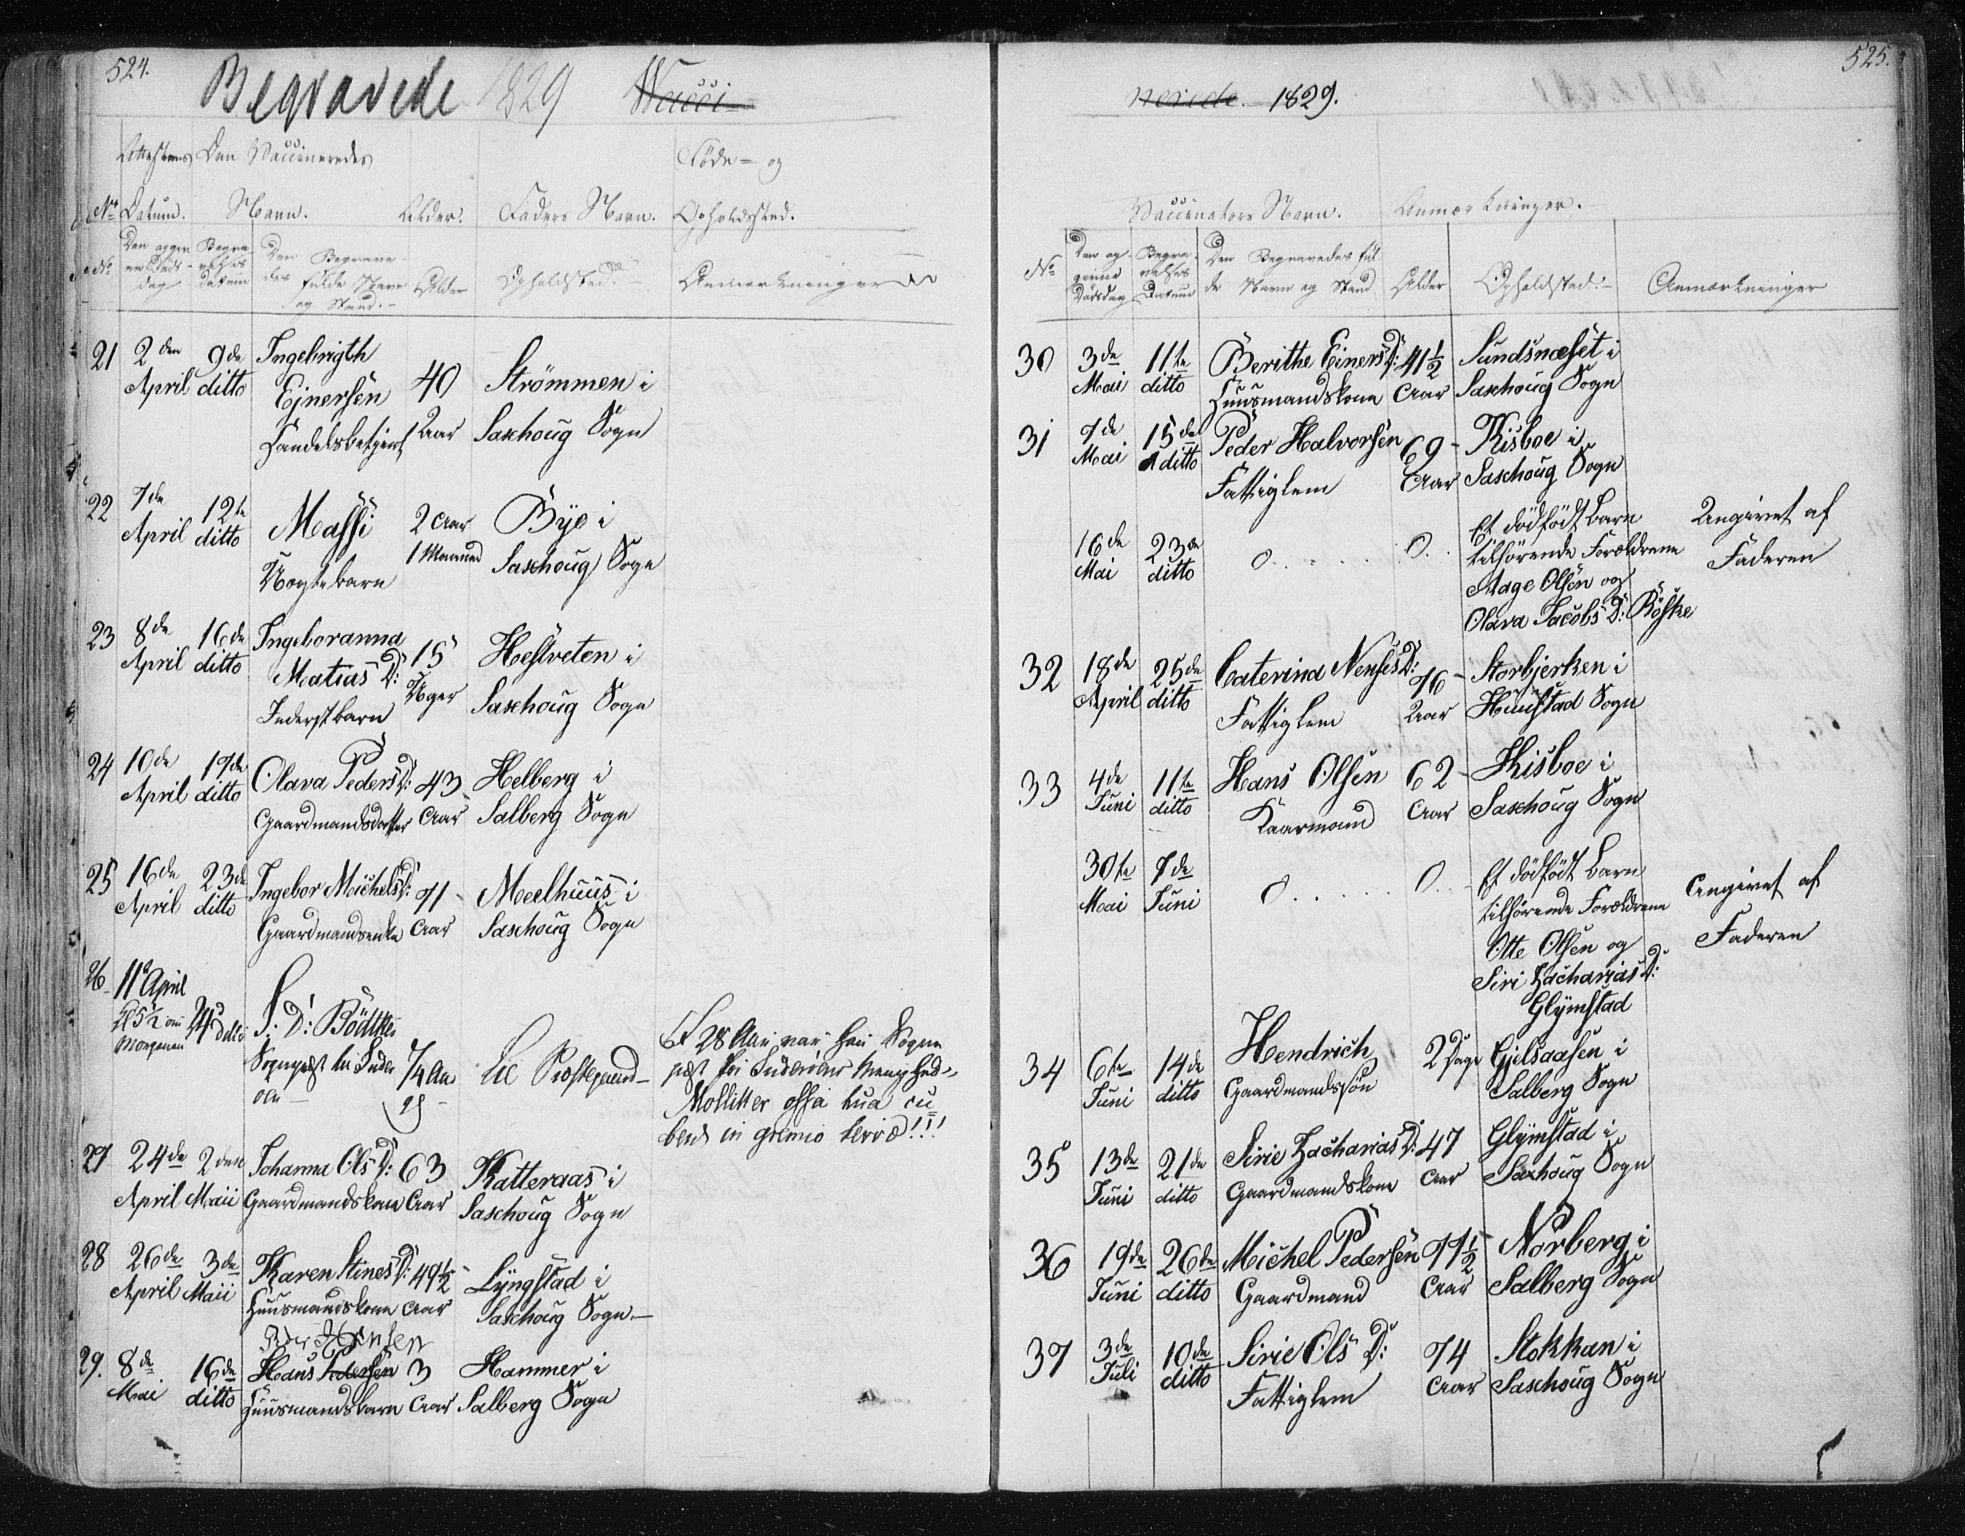 524.
Begravede 1829 Vacci-
Attestens Den Vaccineredes Føde- og
No Datum. Navn. Alder. Faders Navn. Opholdssted.
No Den opgivne Døds-dag Begravelses datum Den Begravedes fulde Navn og Stand.- Alder Opholdsted.- Anmærkninger
21 2den April 9de ditto Ingebrigth
Ejnersen
Handelsbetjent 40 Aar Strömmen i
Saxhoug Sogn
22 7de April 12te ditto Massi
Uægtebarn 2 Aar
1 Maaned Bye i
Saxhoug Sogn
23 8de April 16de ditto Ingeboranna
Matias D:
Inderstbarn 15 Uger Hestveten i
Saxhoug Sogn
24 10de April 17de ditto Olava Peders D:
Gaardmandsdatter 43 Aar Helberg i
Salberg Sogn
25 16de April 23de ditto Ingebor Michels D:
Gaardmandsenke 71 Aar Meelhuus i
Saxhoug Sogn
26 11te April
Kl 5½ om
Morgenen 24de ditto S: D: Bödtker
Sognepræst til Inder
öen 74 Aar Lie Præstegaard
I 28 Aar var han Sogne
præst for Inderöens Menighed
Molliter ossa tua cu
bent in gremio terræ!!!
27 24de April 2den Maii Johanna Ols D:
Gaardmandskone 63 Aar Katteraas i
Saxhoug Sogn
28 26de April 3de Maii Karen Stines D:
Huusmandskone 49½ Aar Lyngstad i
Saxhoug Sogn
Peder Hansen
29. 8de Mai 16de ditto Hans Pedersen
Huusmandsbarn 3 Aar Hammer i
Salberg Sogn
525.
nerede. 1829.
Vaccinators Navn. Anmærkninger.
No Den opgivne Dödsdag Begravelses Datum Den Begravedes fulde Navn og Stand Alder Opholdsted:- Anmærkninger
30 3de Mai 11te ditto Berithe Einers D:
Huusmandskone 41½ Aar Sundsnæset i
Saxhoug Sogn
31 7de Mai 15de ditto Peder Halvorsen
Fattiglem 69 Aar Kisboe i
Saxhoug Sogn
16de Mai 23de ditto 0 0 Et dödfödt Barn
tilhörende Forældrene
Aage Olsen og
Olava Jacobs D: Röske
Angivet af
Faderen
32 18de April 25de ditto Caterina Nenses D:
Fattiglem 76 Aar Storbjerken i
Hüustad Sogn
33 4de Juni 11te ditto Hans Olsen
Kaarmand 62 Aar Kisboe i
Saxhoug Sogn
30te Mai 7de Juni 0 0 Et dödfödt Barn
tilhörende Forældrene
Otte Olsen og
Siri Zacharias D:
Glymstad
Angivet af
Faderen
34 6te Juni 14de ditto Hendrich
Gaardmandssön 2 Dage Gjelsaasen i
Salberg Sogn
35 13de Juni 21de ditto Sirie Zacharias D:
Gaardmandskone 47 Aar Glymstad i
Saxhoug Sogn
36 19de Juni 26de ditto Michel Pedersen
Gaardmand 77½ Aar Norberg i
Salberg Sogn
37 3de Juli 10de ditto Sirie Ols D:
Fattiglem 74 Aar Stokkan i
Saxhoug Sogn